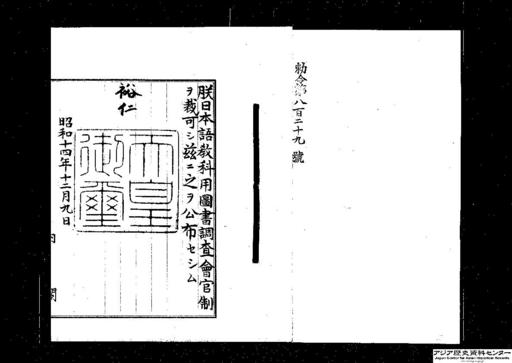 勅令第八百二十九號
朕日本語教科用圖書調査會官制
ヲ裁可シ茲ニ之ヲ公布セシム
裕仁
天皇御璽
昭和十四年十二月九日
内閣
アジア歴史資料センター
Japan Center for Asian Historical Records